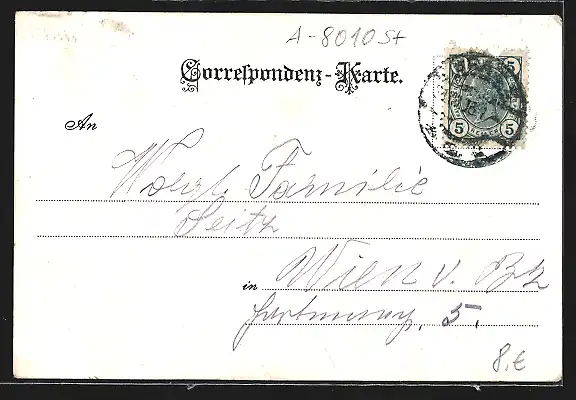 A-8010 St
Correspondenz-Karte.
5 5
An
5 5
Wolgl. Familie
Seitz
in Wien V. Bz
Hartmanng. 5.
8.€